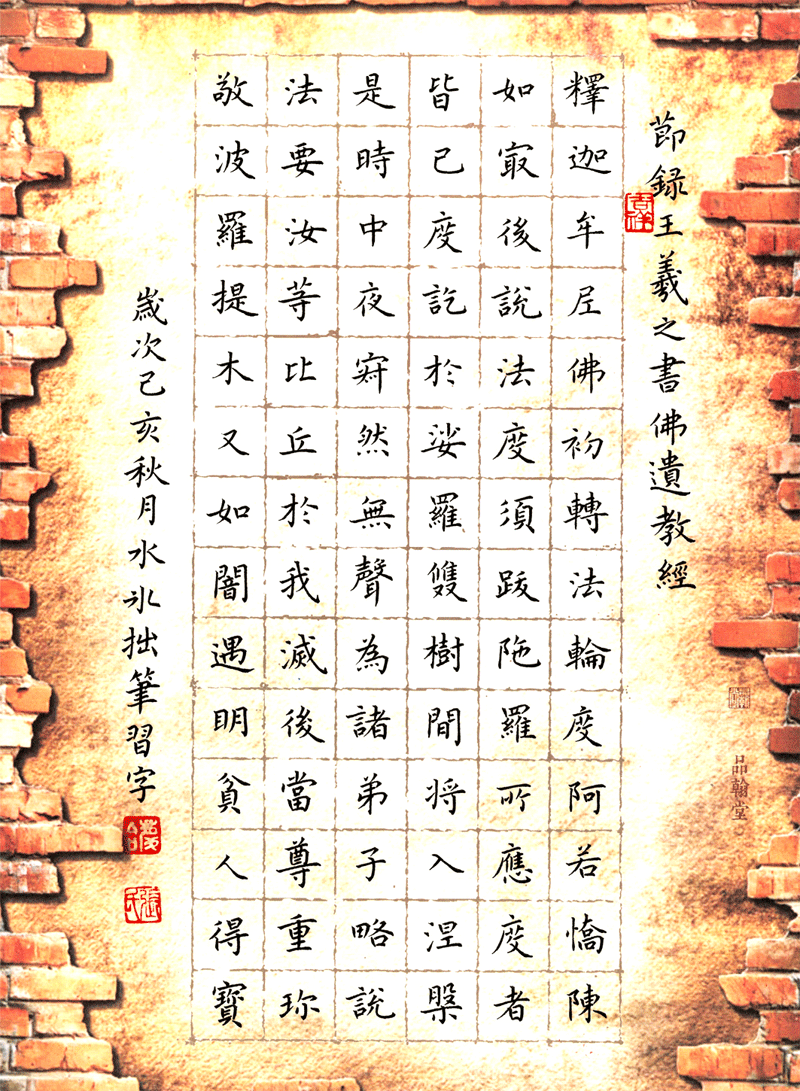 莭録王羲之書佛遺教經
吉祥
釋迦牟尼佛初轉法輪度阿若憍陳
如冣後說法度須跋陁羅所應度者
皆已度訖於娑羅雙樹間将入涅槃
是時中夜寂然無聲為諸弟子略說
法要汝等比丘於我滅後當尊重珎
敬波羅提木叉如闇遇明貧人得寶
歲次己亥秋月水氷拙筆習字
張氏
品翰堂